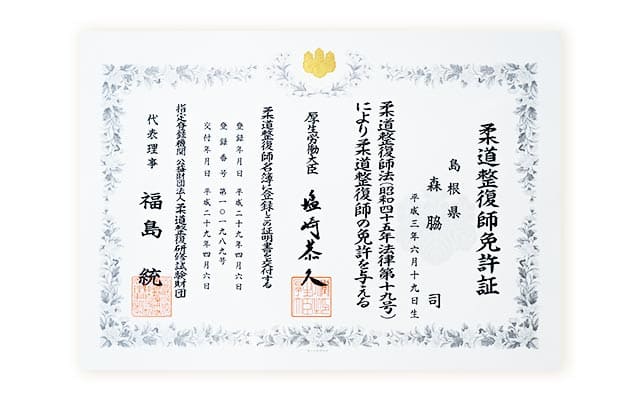 柔道整復師免許証
島根県
森脇 司
平成三年六月十九日生
柔道整復師法(昭和四十五年法律第十九号)
により柔道整復師の免許を与える
厚生労働大臣 塩崎恭久
柔道整復師名簿に登録しこの証明書を交付する
登録年月日 平成二十九年四月六日
登録番号 第一〇一九八九号
交付年月日 平成二十九年四月六日
指定登録機関 公益財団法人柔道整復研修試験財団
代表理事 福島 統